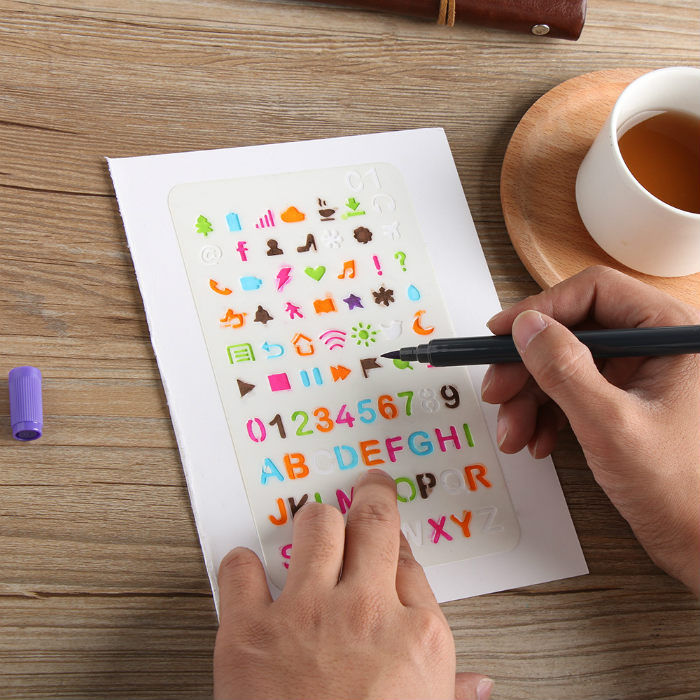 C1
C
@ f
! ?
0 1 2 3 4 5 6 7 8 9
A B C D E F G H I
J K L M O P Q R
S W X Y Z